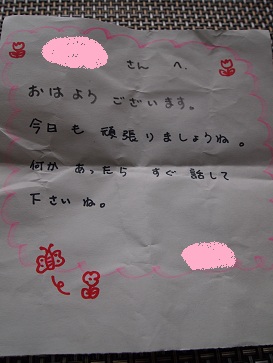 さんへ.
おはようございます。
今日も頑張りましょうね。
何かあったらすぐ話して
下さいね。